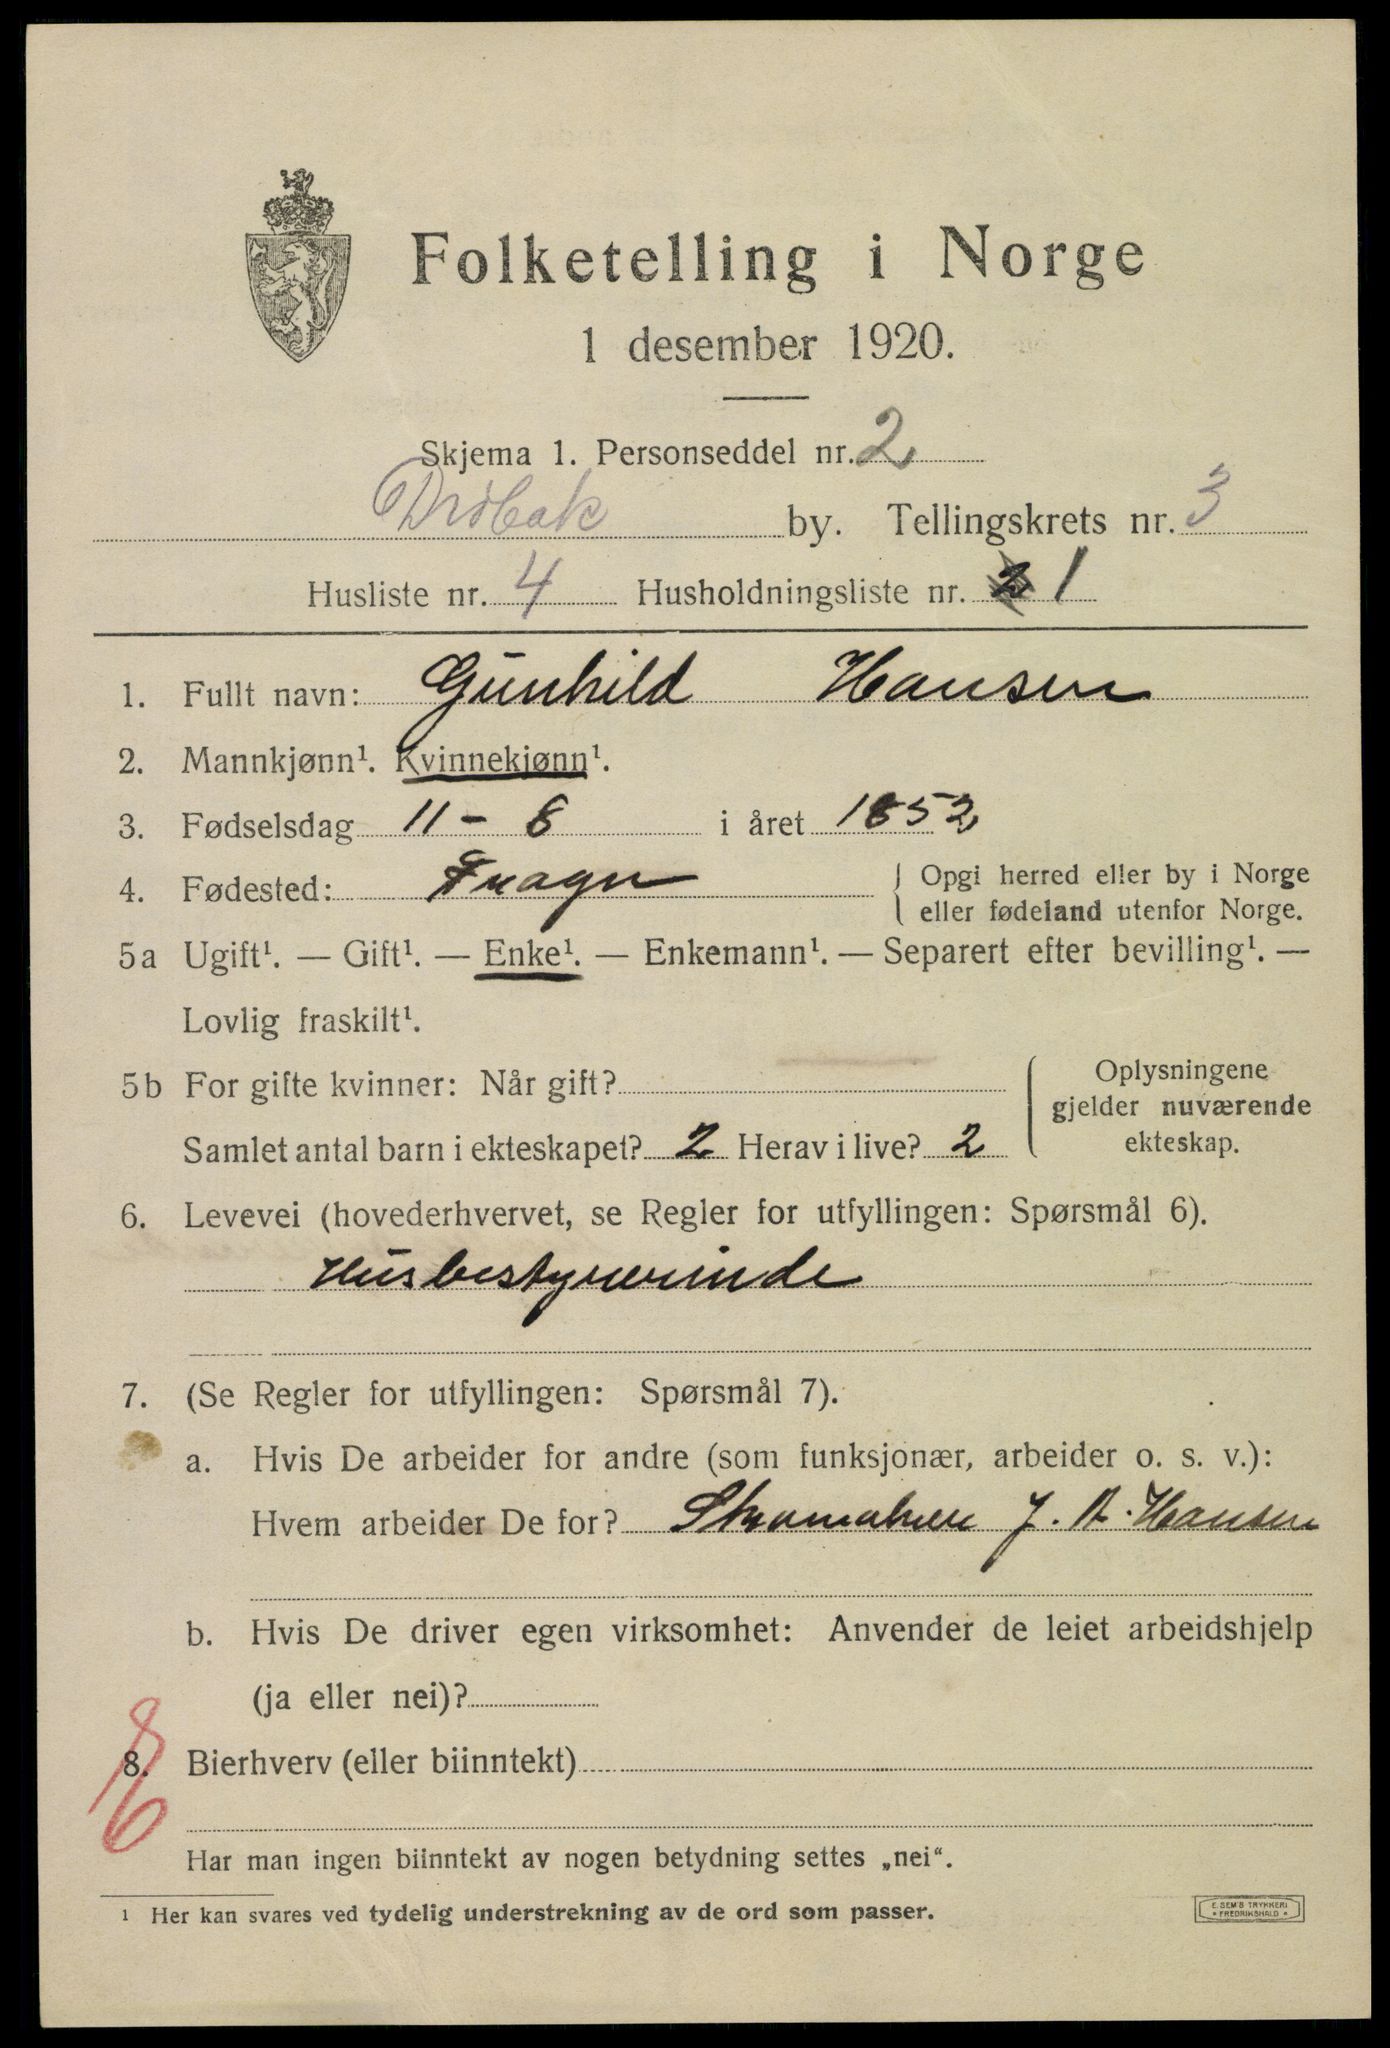 Folketelling i Norge
1 desember 1920.
Skjema 1. Personseddel nr. 2
Drøbak by. Tellingskrets nr. 3
Husliste nr. 4 Husholdningsliste nr. 2 1
1. Fullt navn: Gunhild Hansen
2. Mannkjønn¹. Kvinnekjønn¹.
3. Fødselsdag 11 - 8 i året 1852
4. Fødested: Frogn { Opgi herred eller by i Norge
eller fødeland utenfor Norge.
5a Ugift¹. — Gift¹. — Enke¹. — Enkemann¹. — Separert efter bevilling¹. —
Lovlig fraskilt¹.
5b For gifte kvinner: Når gift? { Oplysningene
gjelder nuværende
Samlet antal barn i ekteskapet? 2 Herav i live? 2 ekteskap.
6. Levevei (hovederhvervet, se Regler for utfyllingen: Spørsmål 6).
Husbestyrerinde
7. (Se Regler for utfyllingen: Spørsmål 7).
a. Hvis De arbeider for andre (som funksjonær, arbeider o. s. v.):
Hvem arbeider De for? J. A. Hansen
b. Hvis De driver egen virksomhet: Anvender de leiet arbeidshjelp
(ja eller nei)?
8. Bierhverv (eller biinntekt)
Har man ingen biinntekt av nogen betydning settes „nei“.
¹ Her kan svares ved tydelig understrekning av de ord som passer.
E. SEM'S TRYKKERI
* FREDRIKSHALD *